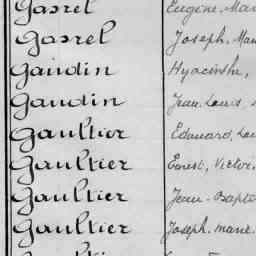 Gasrel Eugène, Mar
Gasrel Joseph, Mar
Gaudin Hyacinthe,
Gaudin Jean Louis,
Gaultier Edouard, Lou
Gaultier Ernest, Victor,
Gaultier Jean-Bapt
Gaultier Joseph, Marie